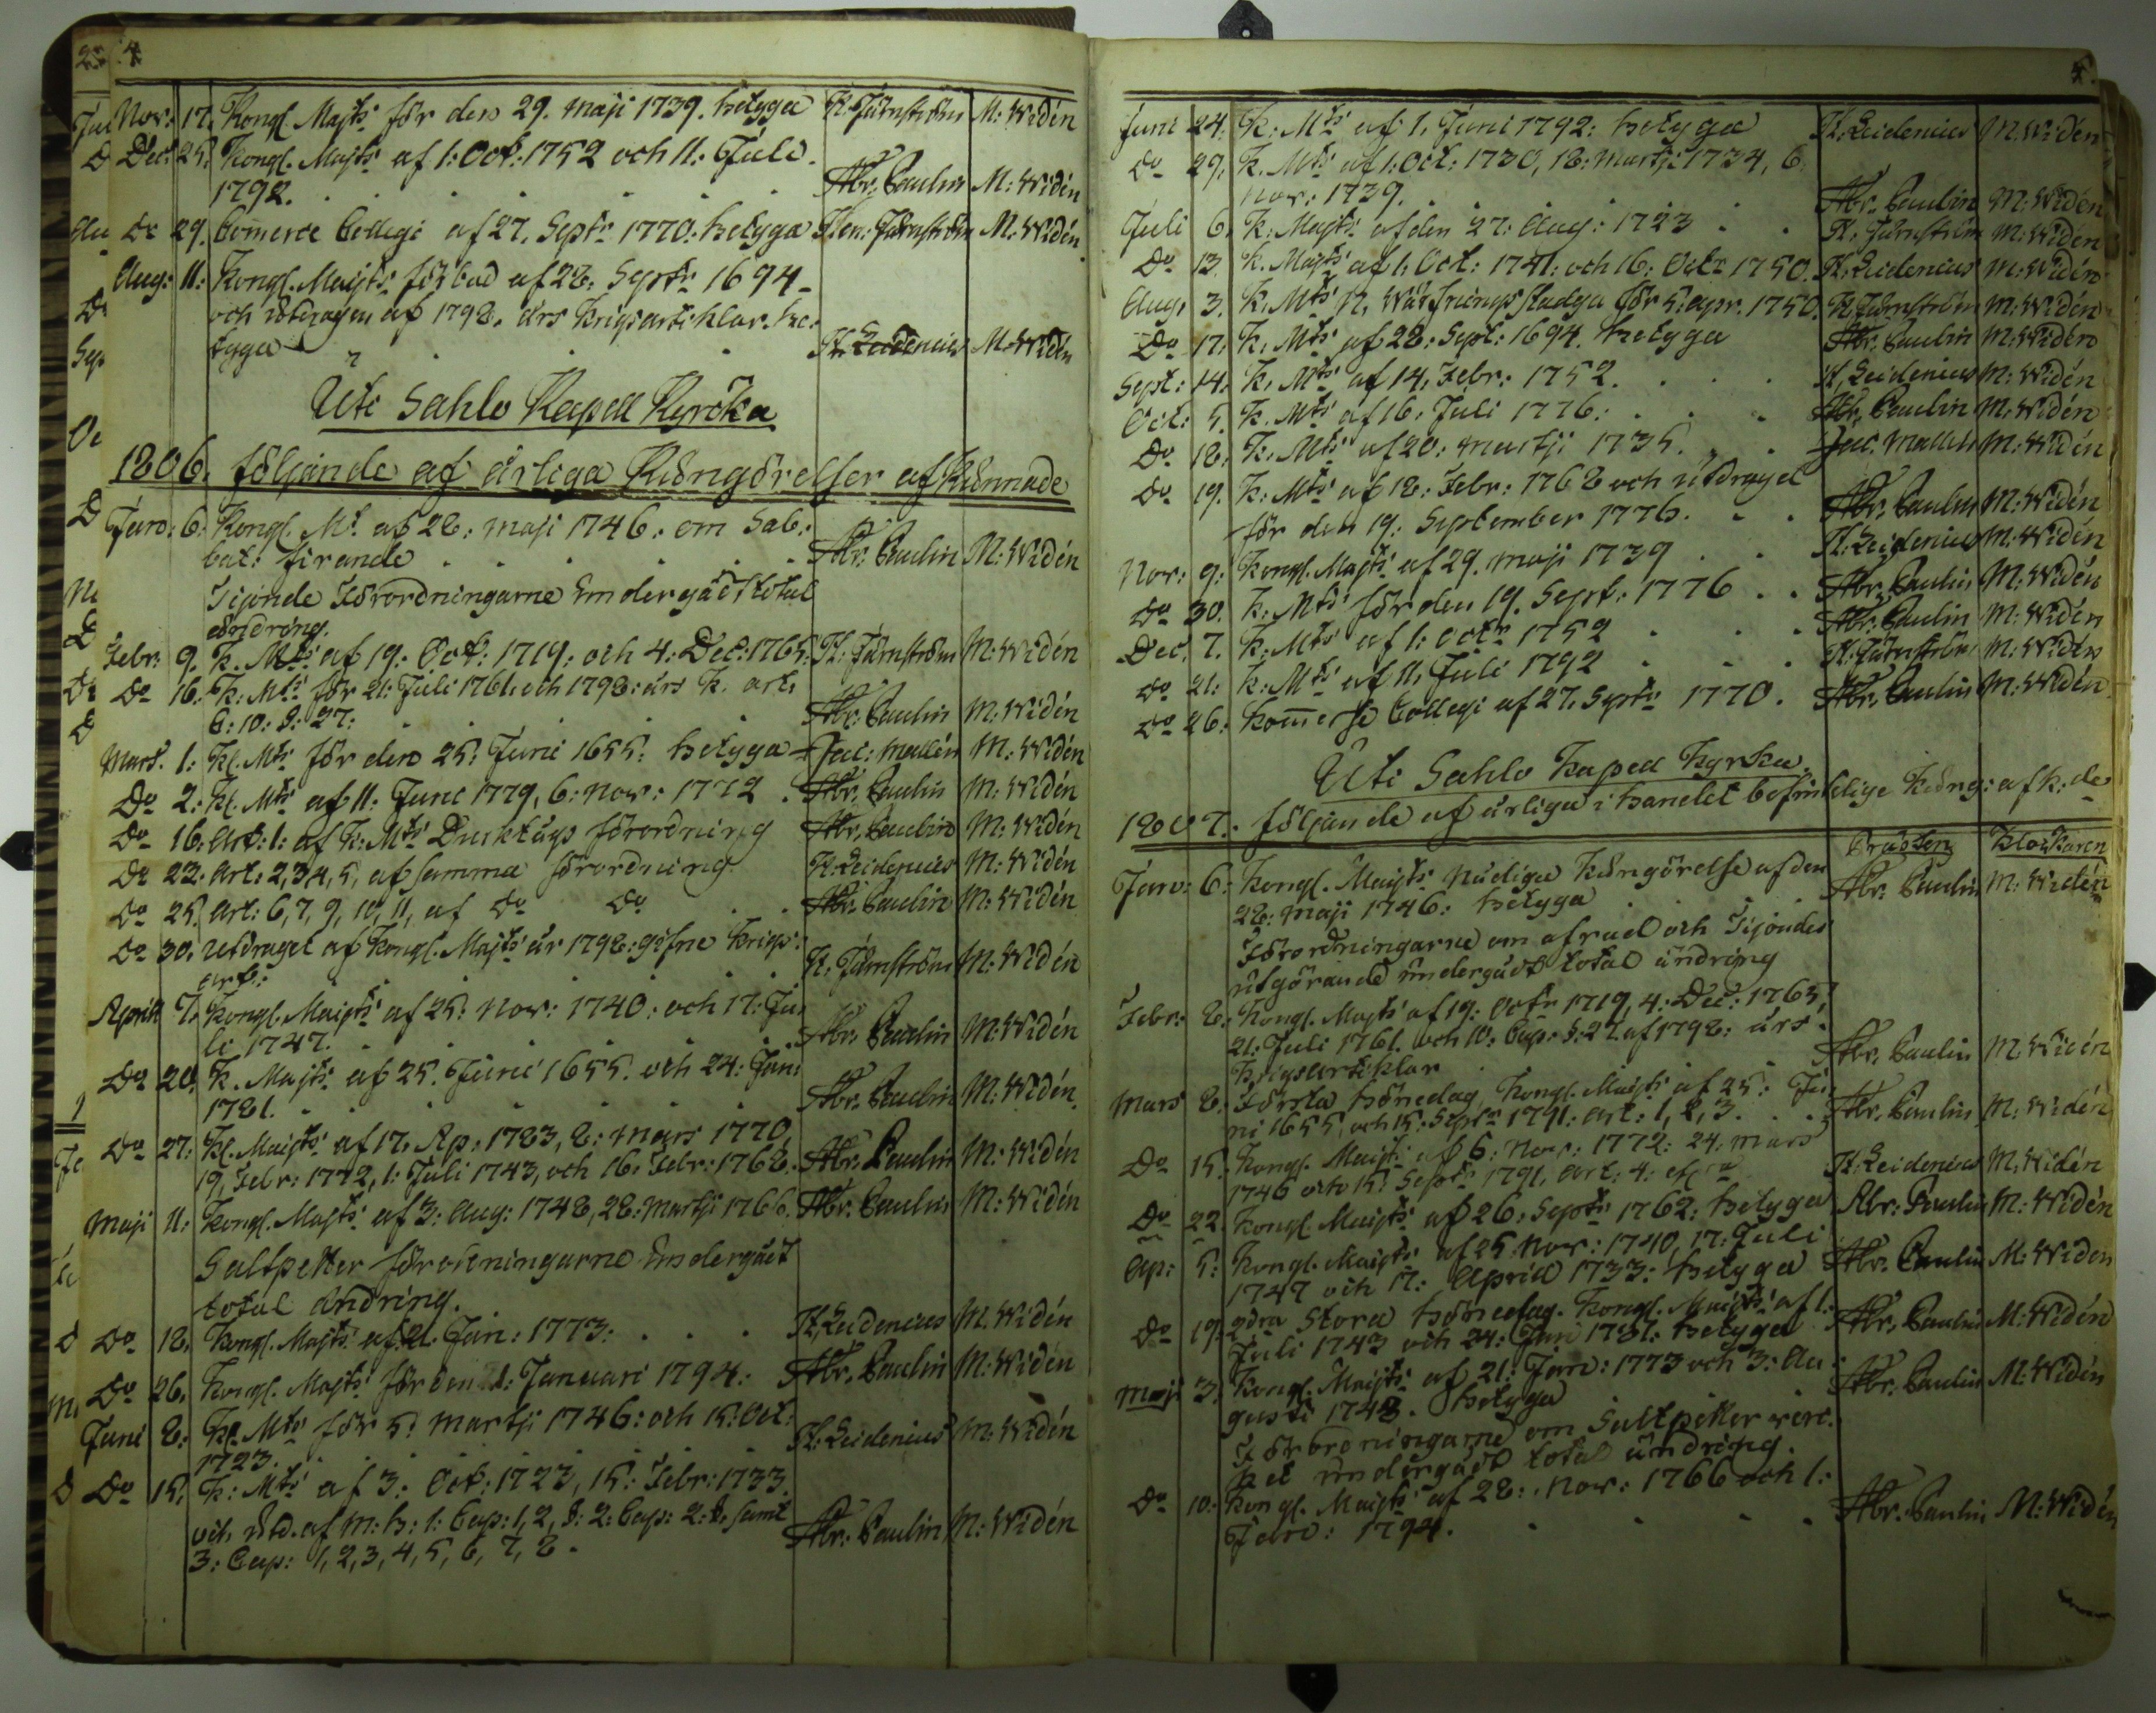 4
Nov: 17. Kongl. Majts för den 29. Maji 1739. betyga H. Järnström M: Widén
Dec: 25. Kongl. Majts af 1: Oct: 1752 och 11: Juli
1792. Abr: Paulin M: Widén
Do 29. Comerce Collegi af 27. Septr 1770. betyga Hen. Järnström M: Widén
Aug: 11: Kongl. Majts förbud af 28. Septr 1694
och utdragen af 1798. års Krigsartiklar. be-
tyga H. Leidenius M: Widén
Uti Sahlo Kapell Kyrcka
1806. följande af årliga Kungörelser afkunnade
Janv: 6: Kongl. Mt af 28: Maji 1746: om Sab-
bat: firande Abr: Paulin M: Widén
Tijonde Förordningarne undergådt total
ändring.
Febr: 9. K. Mts af 19: Oct: 1719: och 4: Dec: 1765: H. Järnström M: Widén
Do 16. K: Mts för 21: Juli 1761. och 1798: års K. art.
C: 10: §: 27: Abr: Paulin M: Widén
Mart. 1: Kl. Mts för den 25: Juni 1655: betyga Jac: Mallén M: Widén
Do 2: Kl. Mts af 11: Juni 1779, 6: Nov: 1772. Abr: Paulin M: Widén
Do 16: Art: 1: af K: Mts förordning Abr: Paulin M: Widén
Do 22. Art: 2, 3, 4, 5, af samma förordning H: Leidenius M: Widén
Do 25. Art: 6, 7, 9, 10, 11, af Do Do Abr: Paulin M: Widén
Do 30. Utdraget af Kongl. Majts år 1798: gifne Krigs:
art: H. Järnström M: Widén
Aprill 7. Kongl. Majts af 25: Nov: 1740: och 17: Ju-
li 1747. Abr: Paulin M: Widén
Do 20. K. Majts af 25. Juni 1655. och 24: Jan:
1781. Abr: Paulin M: Widén
Do 27: Kl. Majts af 17. Ap: 1783, 8: Mars 1770,
19. Febr: 1772, 1: Juli 1743, och 16. Febr: 1768. Abr: Paulin M: Widén
Maji 11: Kongl. Majts af 3: Aug: 1748, 28: Martji 1766. Abr. Paulin M: Widén
Saltpetter förordningarne undergådt
total ändring.
Do 18. Kongl. Majts af 21. Jan: 1773: H. Leidenius M. Widén
Do 26. Kongl. Majts för den 21: Januari 1794: Abr. Paulin M: Widén
Juni 8: Kl. Mts för 5: Martji 1746: och 15: Oct:
1723. H: Leidenius M: Widén
Do 15. K: Mts af 3: Oct: 1723, 15: Febr: 1733.
och Utd. af M: B: 1: Cap: 1, 2, §: 2: Cap: 2: §. samt
3: Cap: 1, 2, 3, 4, 5, 6, 7, 8. Abr: Paulin M: Widén
5.
Juni 24. K: Mts af 1. Juni 1792: betyga H: Leidenius M: Widén
Do 29. K. Mts af 1: Oct: 1730, 18: Martji: 1734, 6:
Nov: 1739. Abr. Paulin M: Widén
Juli 6. K. Majts af den 27: Aug: 1723 H. Järnström M: Widén
Do 13. K. Majts af 1: Oct: 1741: och 16: Octr 1750. H: Leidenius M: Widén
Aug: 3. K. Mts N. Wärfnings stadga för 5: apr. 1750. H. Järnström M: Widén
Do 17. K. Mts af 28: Sept: 1694. betyga Abr. Paulin M: Widén
Sept: 14. K. Mts af 14. Febr: 1752. H, Leidenius M: Widén
Oct: 5. K. Mts af 16. Juli 1776. Abr. Paulin M: Widén
Do 12. K. Mts af 20: Martji 1735. Jac. Mallén M: Widén
Do 19. K: Mts af 18: Febr: 1768 och utdraget
för den 19: September 1776. Abr. Paulin M: Widén
Nov: 9: Kongl. Majts af 29. Maji 1739 H: Leidenius M: Widén
Do 30. K: Mts för den 19. Sept: 1776 Abr. Paulin M: Widén
Dec: 7. K: Mts af 1: Octr 1752 Abr. Paulin M: Widén
Do 21: K: Mts af 11. Juli 1792 H. Järnström M: Widén
Do 26: Kommerse Collegi af 27. Septr 1770. Abr. Paulin M: Widén
Uti Sahlo Kapell Kyrka.
1807. följande af årliga i handel befinteliga Kung: afk: de
Prästen Klockaren
Janv: 6: Kongl. Majts Nådiga Kungörelse af den
28: Maji 1746: betyga Abr. Paulin M: Widén
Förordningarne om afrad och Tijondes
utgörande undergådt total ändring
Febr: 8: Kongl. Majts af 19: Octr 1719, 4: Dec: 1765,
21: Juli 1761. och 10: Cap: §: 27. af 1798: års
Krigsartiklar Abr. Paulin M: Widén
Mars 8: Första bönedag, Kongl. Majts af 25: Ju-
ni 1655, och 15: Septr 1791: art: 1, 2, 3. Abr. Paulin M: Widén
Do 15. Kongl. Majts af 6: Nov: 1772: 24: Mars
1746 och 15: Septr 1791, art: 4: H: Leidenius M: Widén
Do 22. Kongl. Majts af 26: Septr 1762: betyga Abr: Paulin M: Widén
Ap: 5: Kongl. Majts af 25 Nov: 1740, 17: Juli
1747 och 17: Aprill 1733: betyga Abr. Paulin M: Widén
Do 19: 2dra Stora bönedag. Kongl. Majts af 1:
Juli 1743 och 24: Jani 1781: betyga Abr. Paulin M: Widén
Maji 3: Kongl. Majts af 21: Jan: 1773 och 3: Au-
gusti 1748. betyga Abr. Paulin M: Widén
Förordningarne om Saltpetter werc-
ket undergådt total ändring.
Do 10: Kongl. Majts af 28: Nov: 1766 och 1:
1794. Abr. Paulin M: Widén